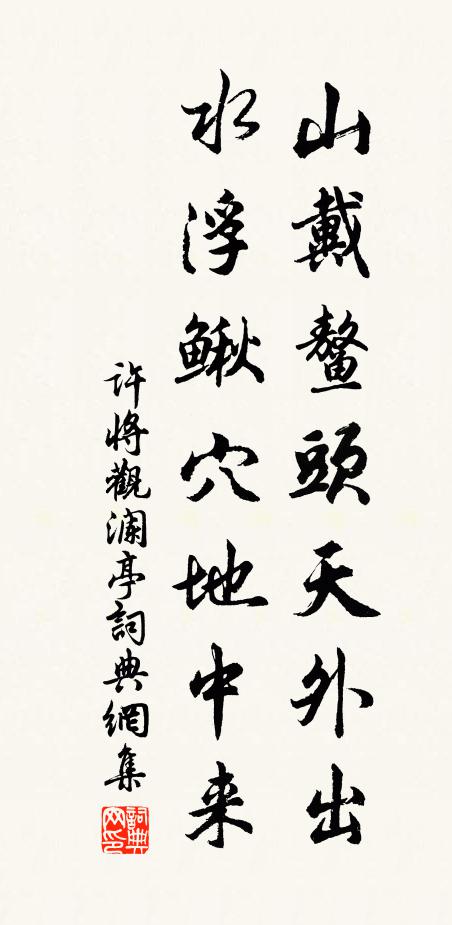 山戴鳌頭天外出
水浮鳅穴地中来
许将觀澜亭詞典網集
詞典网印